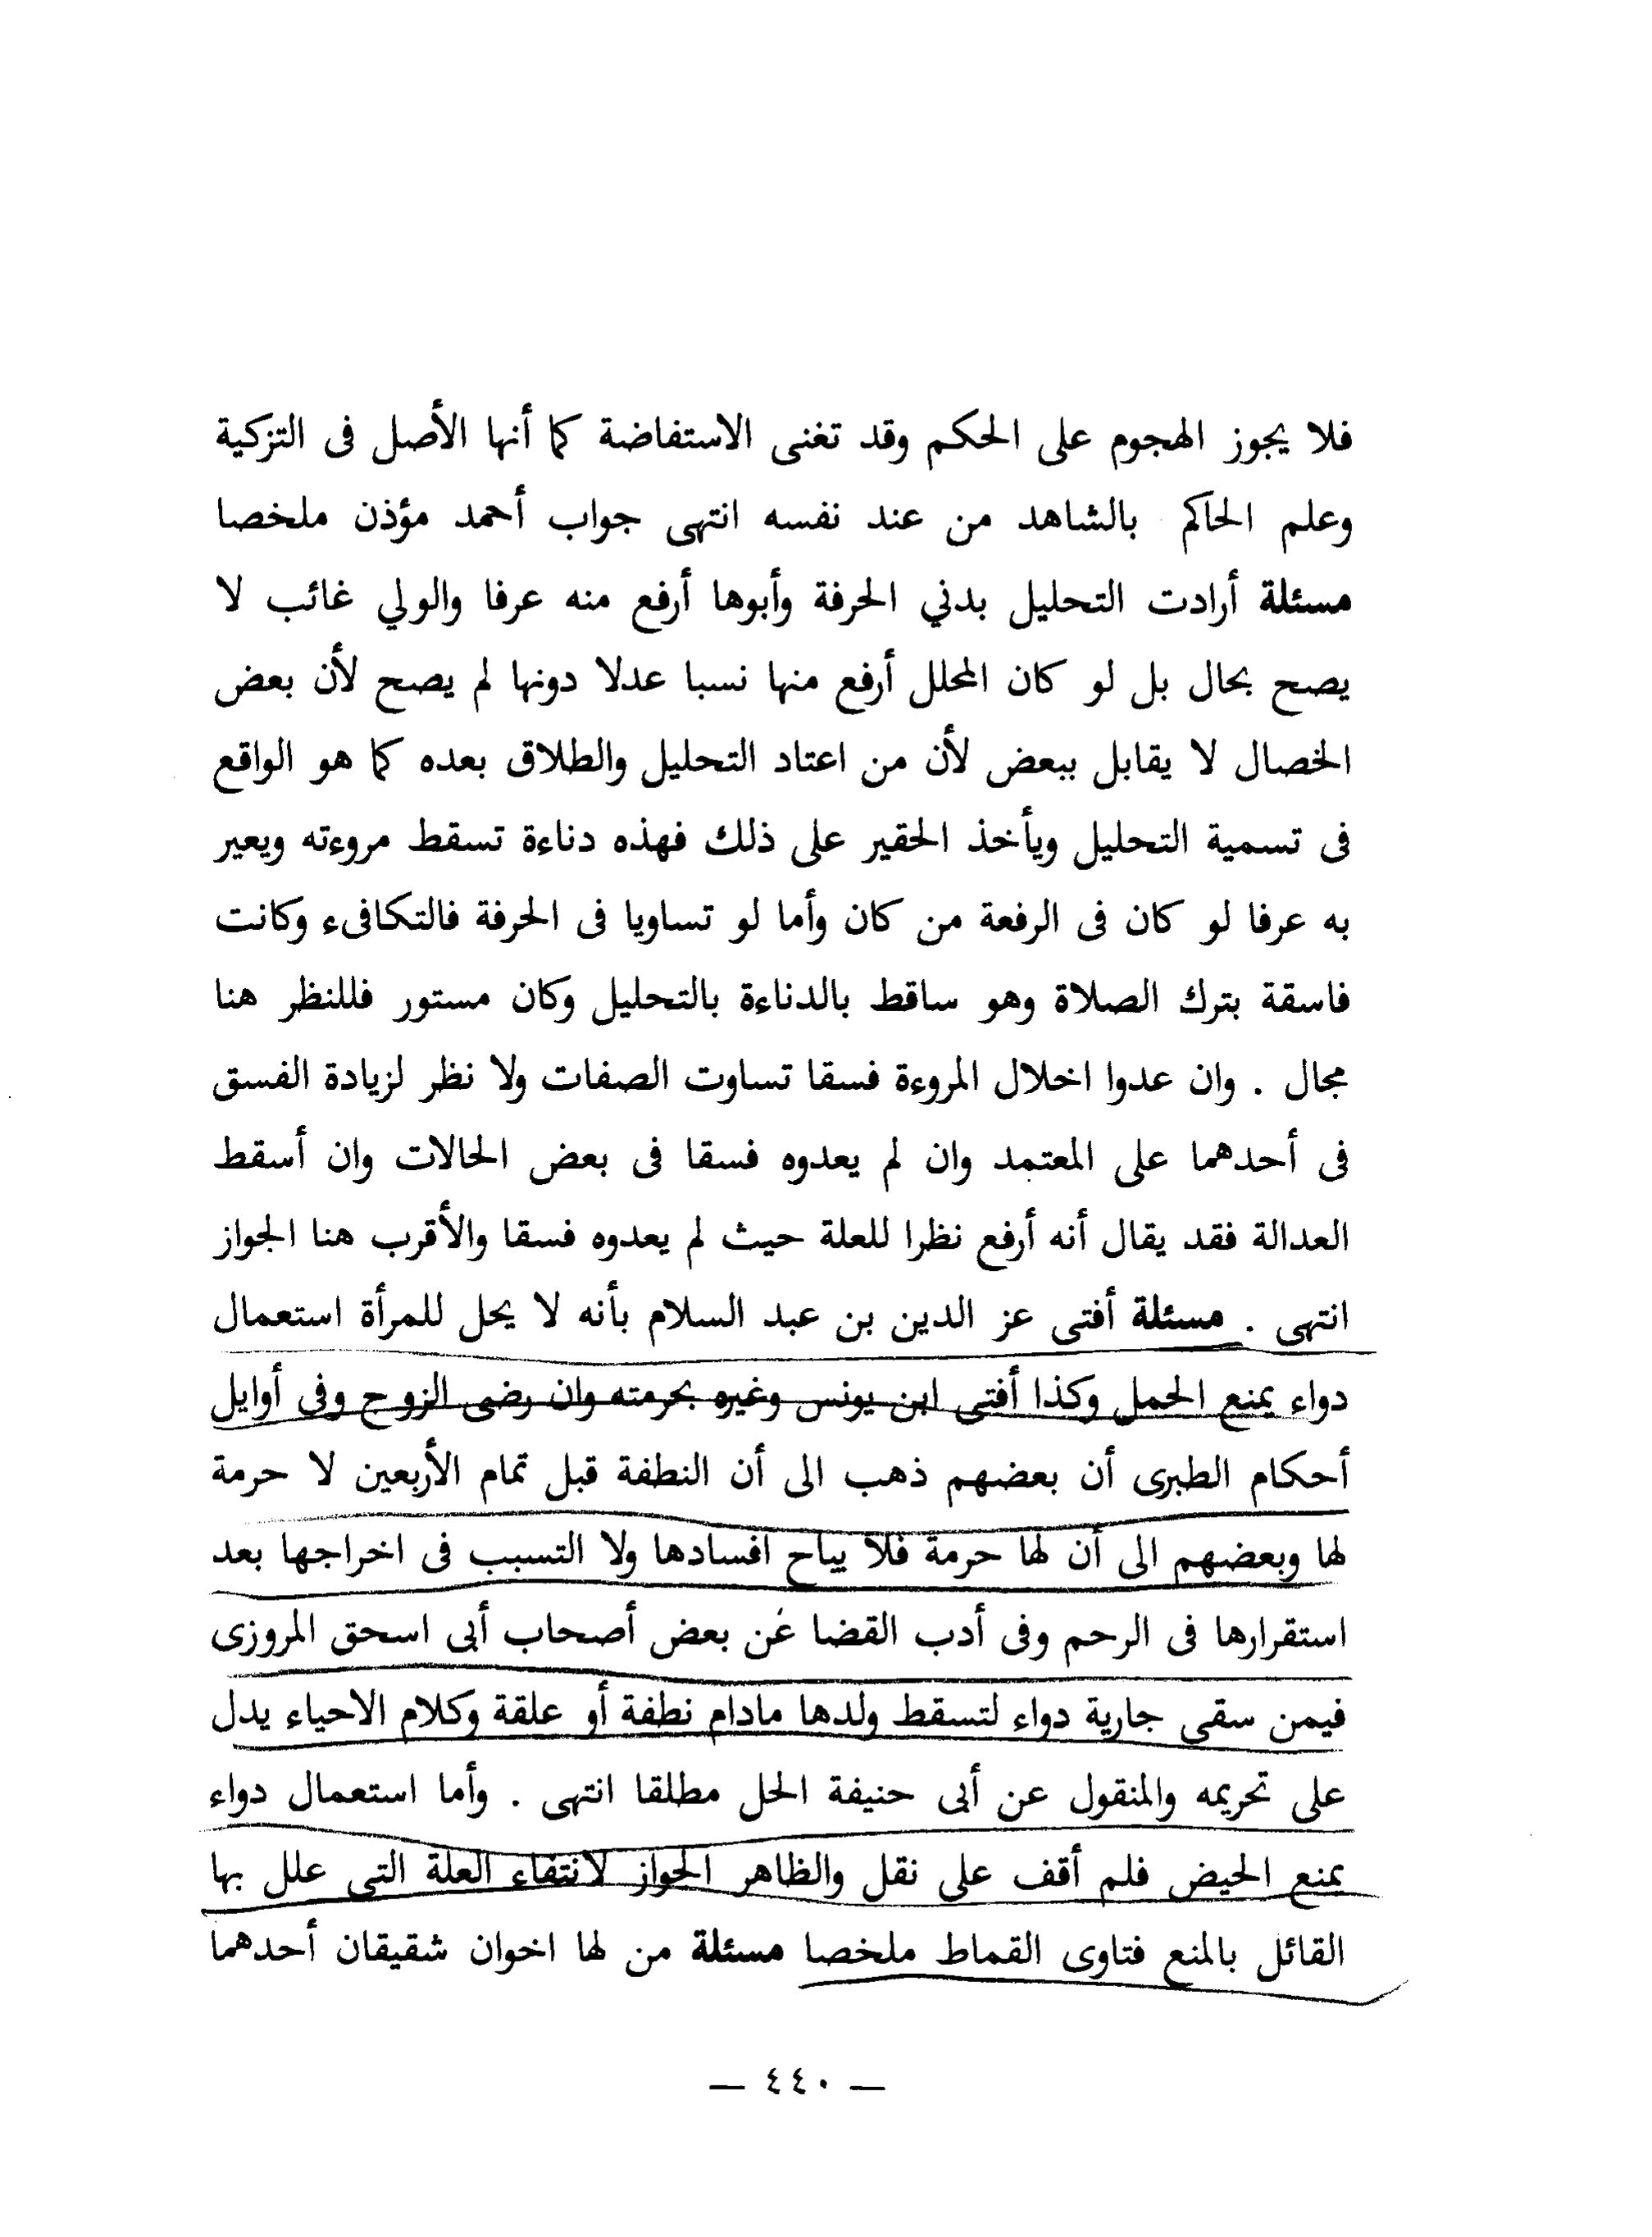 فلا يجوز الهجوم على الحكم وقد تغنى الاستفاضة كما أنها الأصل فى التزكية
وعلم الحاكم بالشاهد من عند نفسه انتهى جواب أحمد مؤذن ملخصا
مسئلة أرادت التحليل بدني الحرفة وأبوها أرفع منه عرفا والولي غائب لا
يصح بحال بل لو كان المحلل أرفع منها نسبا عدلا دونها لم يصح لأن بعض
الخصال لا يقابل ببعض لأن من اعتاد التحليل والطلاق بعده كما هو الواقع
فى تسمية التحليل ويأخذ الحقير على ذلك فهذه دناءة تسقط مروءته ويعير
به عرفا لو كان فى الرفعة من كان وأما لو تساويا فى الحرفة فالتكافىء وكانت
فاسقة بترك الصلاة وهو ساقط بالدناءة بالتحليل وكان مستور فللنظر هنا
مجال . وان عدوا اخلال المروءة فسقا تساوت الصفات ولا نظر لزيادة الفسق
فى أحدهما على المعتمد وان لم يعدوه فسقا فى بعض الحالات وان أسقط
العدالة فقد يقال أنه أرفع نظرا للعلة حيث لم يعدوه فسقا والأقرب هنا الجواز
انتهى . مسئلة أفتى عز الدين بن عبد السلام بأنه لا يحل للمرأة استعمال
دواء يمنع الحمل وكذا أفتى ابن يونس وغيره بحرمته وان رضى الزوج وفى أوايل
أحكام الطبرى أن بعضهم ذهب الى أن النطفة قبل تمام الأربعين لا حرمة
لها وبعضهم الى أن لها حرمة فلا يباح افسادها ولا التسبب فى اخراجها بعد
استقرارها فى الرحم وفى أدب القضا عن بعض أصحاب أبى اسحق المروزى
فيمن سقى جارية دواء لتسقط ولدها مادام نطفة أو علقة وكلام الاحياء يدل
على تحريمه والمنقول عن أبى حنيفة الحل مطلقا انتهى . وأما استعمال دواء
يمنع الحيض فلم أقف على نقل والظاهر الجواز لانتفاء العلة التى علل بها
القائل بالمنع فتاوى القماط ملخصا مسئلة من لها اخوان شقيقان أحدهما
— ٤٤٠ —